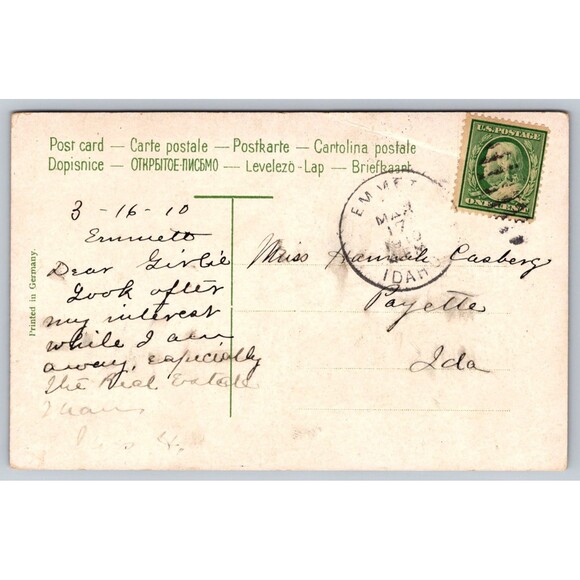 Post card — Carte postale — Postkarte — Cartolina postale
Dopisnice — ОТКРЫТОЕ ПИСЬМО — Levelező-Lap — Briefkaart
U.S. POSTAGE
ONE CENT
EMMET
MAR
17
IDAHO
3-16-10
Emmett
Dear Girlie
Look after
my interest
while I am
away, especially
the Real Estate
Miss Hannah Casberg
Payette
Ida
Printed in Germany.